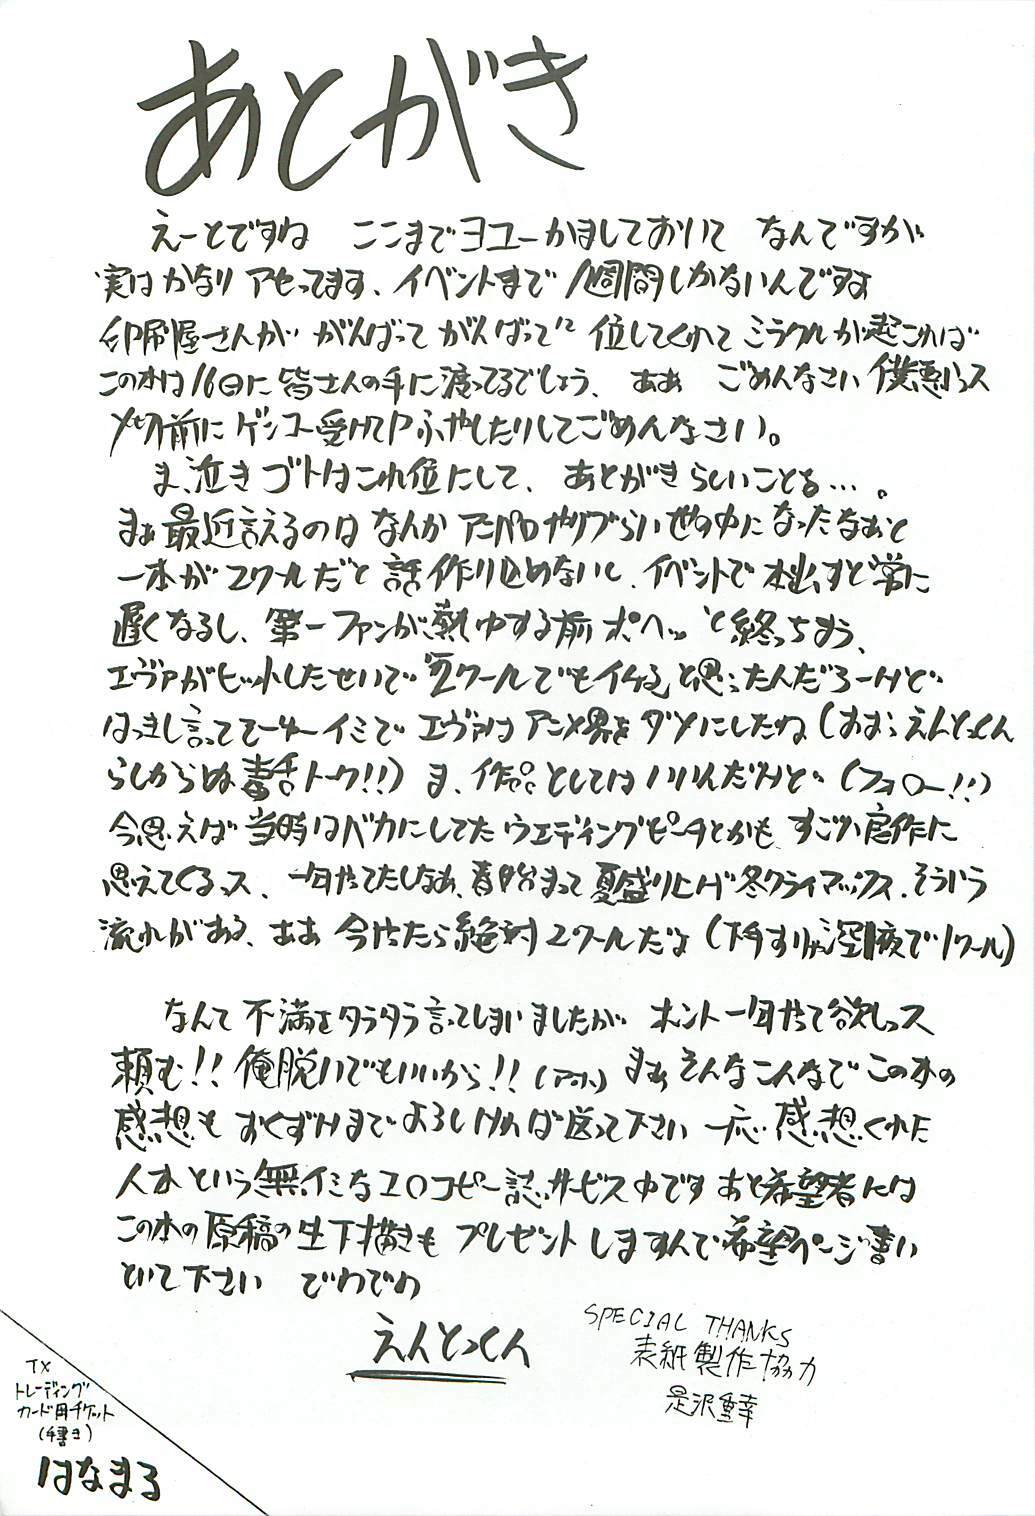 あとがき
えーとですね ここまでヨユーかましておいて なんですが
実はかなり アセってます、イベントまで 1週間しかないんですよ
印刷屋さんが がんばって がんばって 位してくれて ミラクルが起これば
この本は16日に皆さんの手に渡ってるでしょう、ああ ごめんなさい 僕悪いっス
〆切前にゲンコー受けてPふやしたりしてごめんなさい。
ま、泣きゴトはこれ位にして、あとがきらしいことを…。
まぁ最近言えるのは なんか アニパロやりづらい世の中になったなぁと
一本が2クールだと 話作り込めないし、イベントで本出すと常に
遅くなるし、第一ファンが熱中する前ポヘッと終っちまう、
エヴァがヒットしたせいで "2クールでもイケる"と思ったんだろーけど
はっきし言ってそーゆーイミで エヴァは アニメ界を ダメにしたね(おおっえんとっくん
らしからぬ毒舌トーク!!) ま、作品としてはいいんだけど(フォロー!!)
今思えば 当時はバカにしてた ウエディングピーチとかも すごい傑作に
思えてくるっス、一年やってたしなぁ、春始まって 夏盛り上げ 冬クライマックス、そういう
流れがある、ああ 今やったら絶対 2クールだよ (下手すりゃ深夜で1クール)
なんて 不満をタラタラ言ってしまいましたが ホント一年やって欲しっス
頼む!! 俺脱いでもいいから!! まぁ そんなこんなで この本の
感想も おくずけまで よろしければ送って下さい 一応 感想くれた
人本という無イミなエロコピー誌サービス中です あと希望者には
この本の原稿の生下描きも プレゼント しますんで希望ページ書い
といて下さい でわでわ
えんとっくん
SPECIAL THANKS
表紙製作協力
是沢重幸
TX
トレーディング
カード用チケット
(手書き)
はなまる